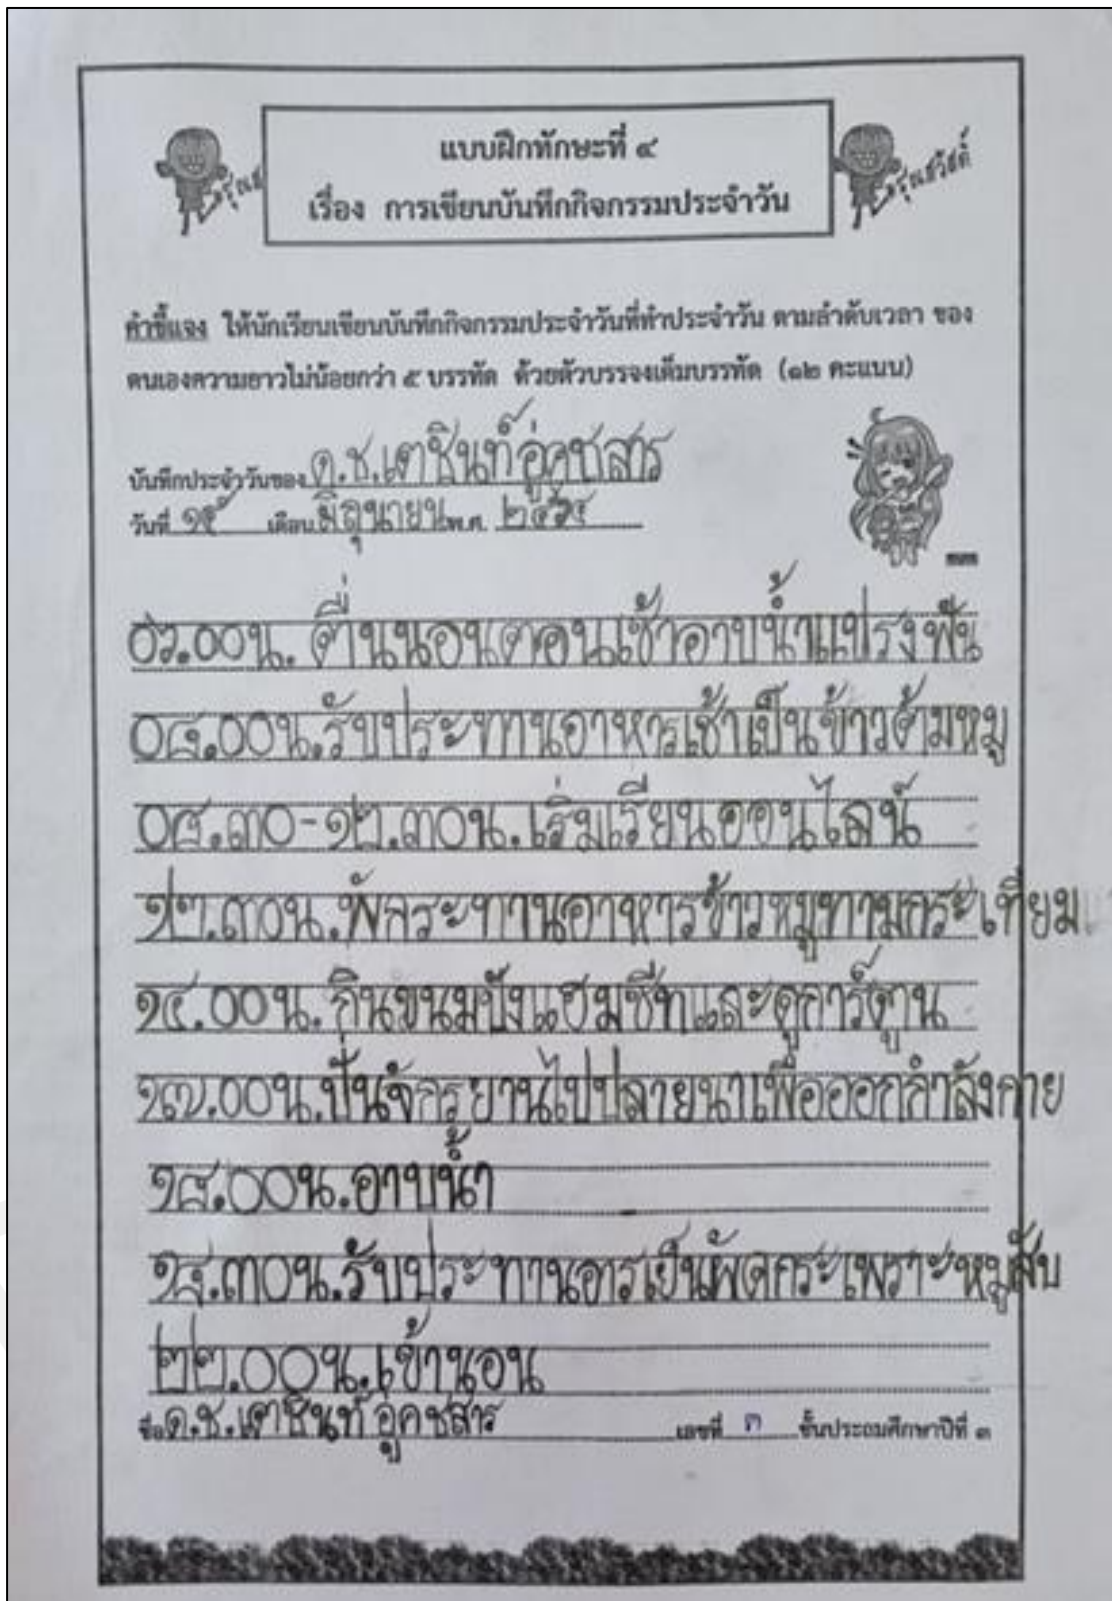 แบบฝึกทักษะที่ ๔
เรื่อง การเขียนบันทึกกิจกรรมประจำวัน
คำชี้แจง ให้นักเรียนเขียนบันทึกกิจกรรมประจำวันที่ทำประจำวัน ตามลำดับเวลา ของ
ตนเองความยาวไม่น้อยกว่า ๕ บรรทัด ด้วยตัวบรรจงเต็มบรรทัด (๑๒ คะแนน)
บันทึกประจำวันของ ด.ช.เตชินท์ อู่คชสาร
วันที่ ๑๕ เดือน มิถุนายน พ.ศ. ๒๕๖๔
๐๖.๐๐น. ตื่นนอนตอนเช้าอาบน้ำแปรงฟัน
๐๘.๐๐น.รับประทานอาหารเช้าเป็นข้าวต้มหมู
๐๘.๓๐-๑๒.๓๐น.เริ่มเรียนออนไลน์
๑๒.๓๐น.พักระทานอาหารข้าวหมูทามกระเทียม
๑๔.๐๐น.กินขนมปังแฮมชีทและดูการ์ตูน
๑๗.๐๐น.ปั่นจักรยานไปปลายนาเพื่อออกกำลังกาย
๑๘.๐๐น.อาบน้ำ
๑๘.๓๐น.รับประทานอารเย็นผัดกระเพราะหมูสับ
๒๒.๐๐น.เข้านอน
ชื่อ ด.ช.เตชินท์ อู่คชสาร เลขที่ ๓ ชั้นประถมศึกษาปีที่ ๓